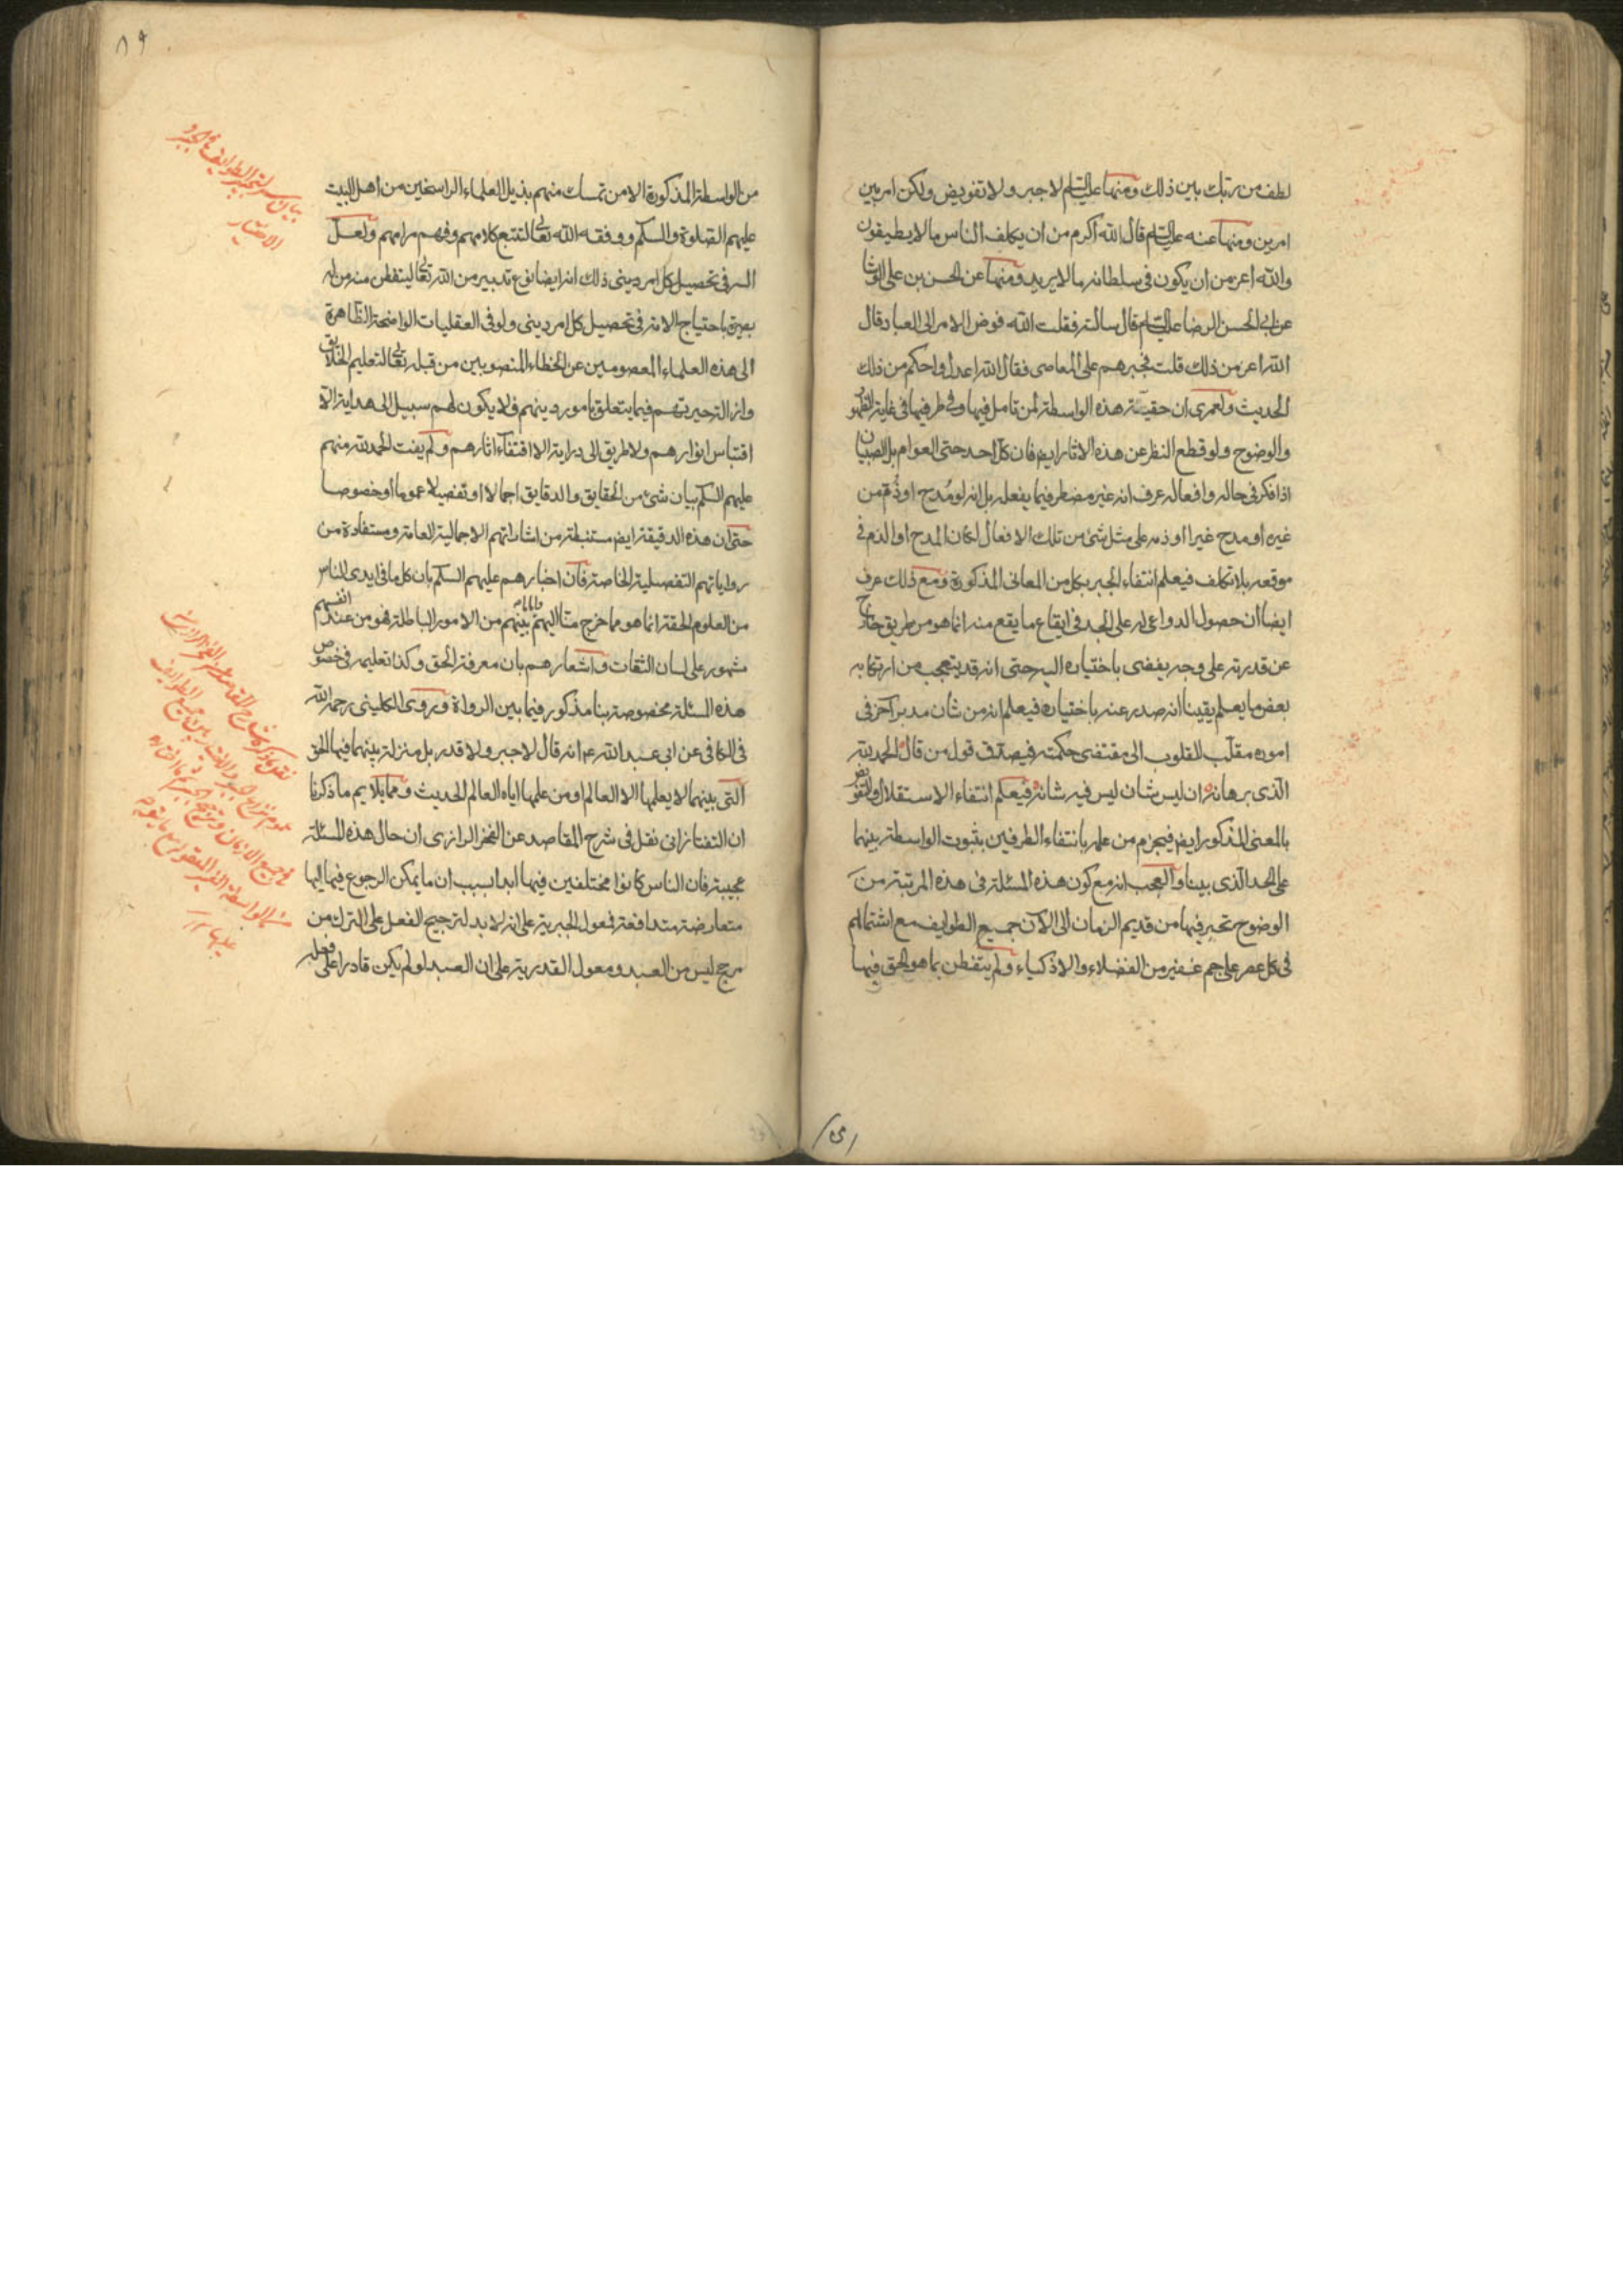 لطف من ربك بين ذلك ومنها عنه عليه السلم لا جبر ولا تفويض ولكن امر بين
امرين ومنها عنه عليه السلم قال الله اكرم من ان يكلف الناس ما لا يطيقون
والله اعز من ان يكون فى سلطانه ما لا يريد ومنها عن الحسن بن على الوشا
عن ابى الحسن الرضا عليه السلم قال سالته فقلت الله فوض الامر الى العباد قال
الله اعز من ذلك قلت فجبرهم على المعاصى فقال الله اعدل واحكم من ذلك
الحديث ولعمرى ان حقية هذه الواسطة لمن تامل فيها وفى طرفيها فى غاية الظهور
والوضوح ولو قطع النظر عن هذه الاثار ايض فان كل احد حتى العوام بل الصبيان
اذا فكر فى حاله وافعاله عرف انه غير مضطر فيما يفعله بل انه لو مُدح او ذُم من
غيره او مدح غيرا او ذمه على مثل شئ من تلك الافعال لكان المدح او الذم فى
موقعه بلا تكلف فيعلم انتفاء الجبر بكل من المعانى المذكورة ومع ذلك عرف
ايضا ان حصول الدواعى له على الجد فى ايقاع ما يقع منه انما هو من طريق خارج
عن قدرته على وجه يفضى باختياره اليه حتى انه قد يتعجب من ارتكابه
بعض ما يعلم يقينا انه صدر عنه باختياره فيعلم انه من شان مدبر آخر فى
اموره مقلّب للقلوب الى مقتضى حكمته فيصدق قول من قال الحمد لله
الذى برهانه ان ليس شان ليس فيه شانه فيعلم انتفاء الاستقلال والتفويض
بالمعنى المذكور ايض فيجزم من علمه بانتفاء الطرفين بثبوت الواسطة بينهما
على الحد الذى بينا والعجب انه مع كون هذه المسئلة فى هذه المرتبة من
الوضوح تحير فيها من قديم الزمان الى الآن جميع الطوايف مع اشتمالهم
فى كل عصر على جم غفير من الفضلاء والاذكياء ولم يتفطن بما هو الحق فيها
٨٩
من الواسطة المذكورة الا من تمسك منهم بذيل العلماء الراسخين من اهل البيت
عليهم الصلوة والسلم ووفقه الله تعالى لتتبع كلامهم وفهم مرامهم ولعل
السر فى تحصيل كل امر دينى ذلك انه ايضا نوع تدبير من الله تعالى ليتفطن منه من له
بصيرة باحتياج الامة فى تحصيل كل امر دينى ولو فى العقليات الواضحة الظاهرة
الى هذه العلماء المعصومين عن الخطاء المنصوبين من قبله تعالى لتعليم الخلايق
وازالة حيرتهم فيما يتعلق بامور دينهم فلا يكون لهم سبيل الى هداية الا
اقتباس انوارهم ولا طريق الى دراية الا اقتفاء آثارهم ولم يفت الحمد لله منهم
عليهم السلم بيان شئ من الحقايق والدقايق اجمالا او تفصيلا عموما او خصوصا
حتى ان هذه الدقيقة ايض مستنبطة من اشاراتهم الاجمالية العامة ومستفادة من
رواياتهم التفصيلية الخاصة فان اخبارهم عليهم السلم بان كل ما فى ايدى الناس
من العلوم الحقة انما هو مما خرج منا اليهم بينهم من الامور الباطلة فهو من عند انفسهم
مشهور على لسان الثقات واشعارهم بان معرفة الحق وكذا تعليمه فى خصوص
هذه المسئلة مخصوصة بنا مذكور فيما بين الرواة وروى الكلينى رحمه الله
فى الكافى عن ابى عبد الله عم انه قال لا جبر ولا قدر بل منزلة بينهما فيها الحق
التى بينهما لا يعلمها الا العالم او من علمها اياه العالم الحديث ومما يلايم ما ذكرنا
ان التفتازانى نقل فى شرح المقاصد عن الفخر الرازى ان حال هذه المسئلة
عجيبة فان الناس كانوا مختلفين فيها ابدا بسبب ان ما يمكن الرجوع فيها اليها
متعارضة متدافعة فمعول الجبرية على انه لا بد لترجيح الفعل على الترك من
مرجح ليس من العبد ومعول القدرية على ان العبد لو لم يكن قادرا على فعله